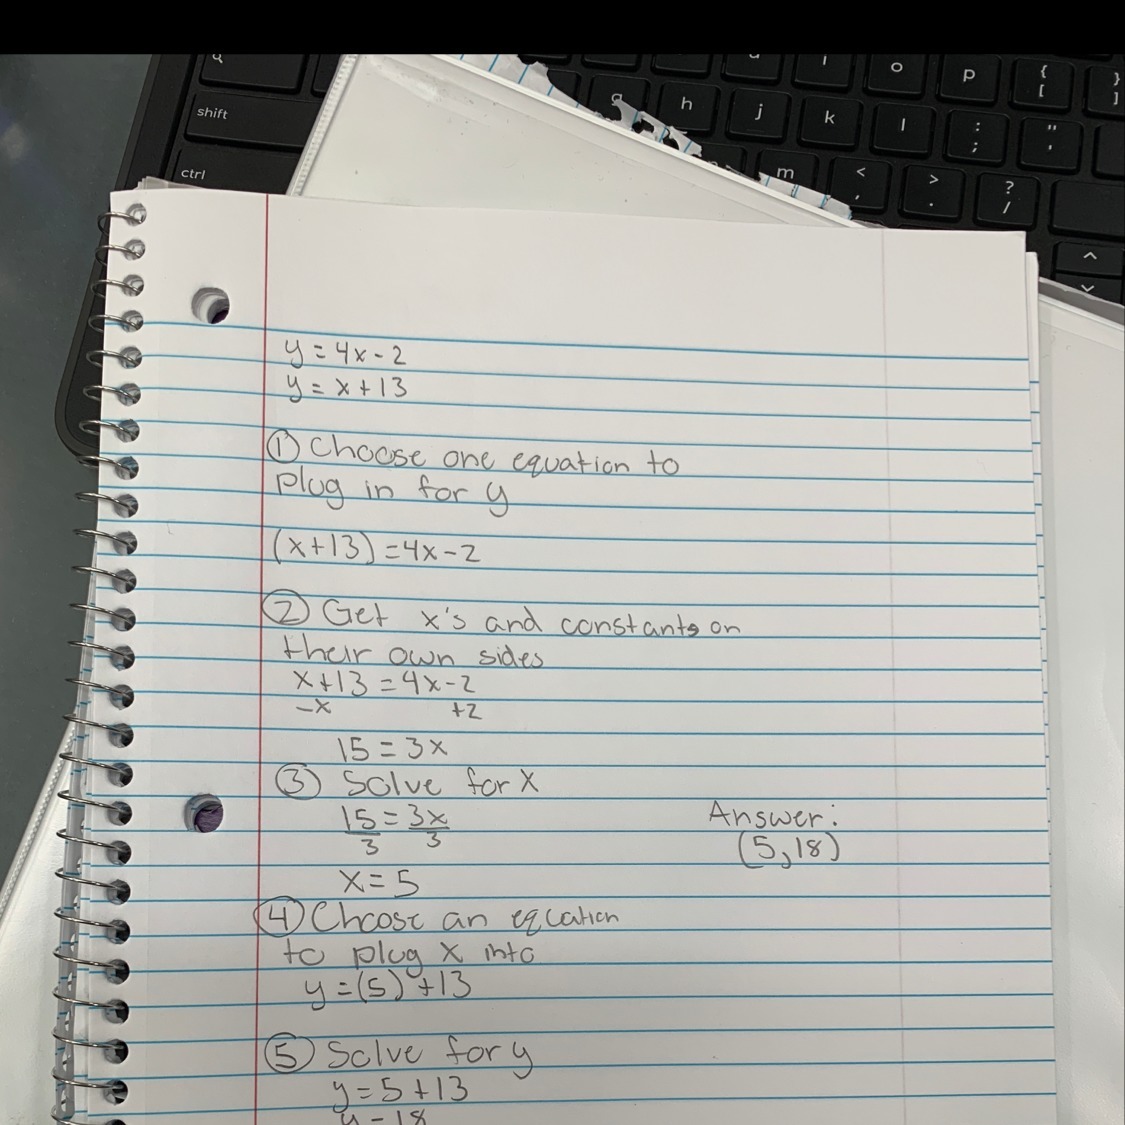 shift
ctrl
u i o p { [ } ]
g h j k l : ; " '
m < , > . ? /
y = 4x - 2
y = x + 13
① Choose one equation to
plug in for y
(x+13) = 4x - 2
② Get x's and constants on
their own sides
x+13 = 4x - 2
-x +2
15 = 3x
③ Solve for x
15 = 3x
3 3
x = 5
Answer:
(5,18)
④ Choose an equation
to plug x into
y = (5) + 13
⑤ Solve for y
y = 5 + 13
y = 18